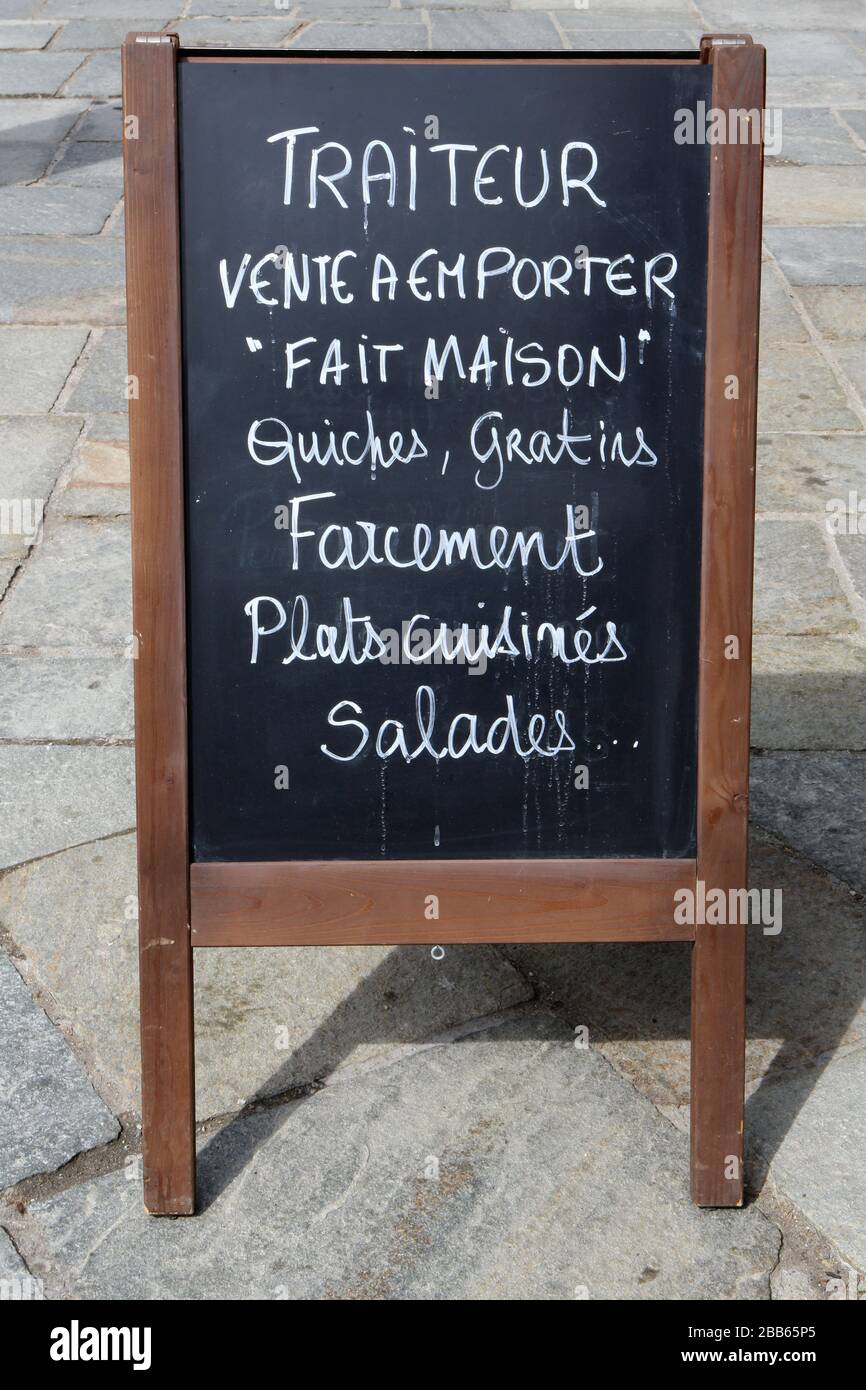 TRAITEUR
VENTE A EMPORTER
"FAIT MAISON"
Quiches, Gratins
Farcement
Plats cuisinés
Salades...
alamy
Image ID: 2BB65P5
www.alamy.com